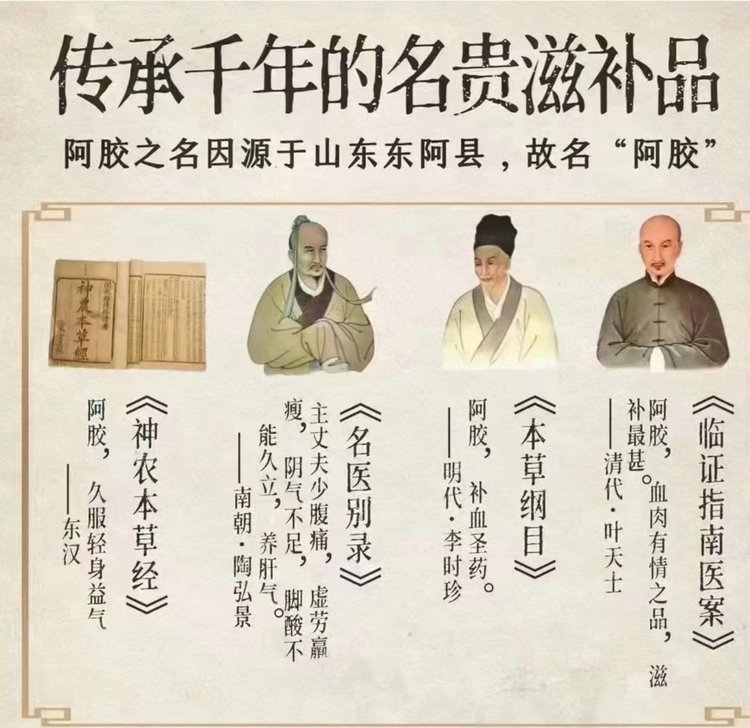 传承千年的名贵滋补品
阿胶之名因源于山东东阿县，故名“阿胶”
神農本草經
《神农本草经》
阿胶，久服轻身益气
——东汉
《名医别录》
主丈夫少腹痛，虚劳羸
瘦，阴气不足，脚酸不
能久立，养肝气。
——南朝·陶弘景
《本草纲目》
阿胶，补血圣药。
——明代·李时珍
《临证指南医案》
阿胶，血肉有情之品，滋
补最甚。
——清代·叶天士